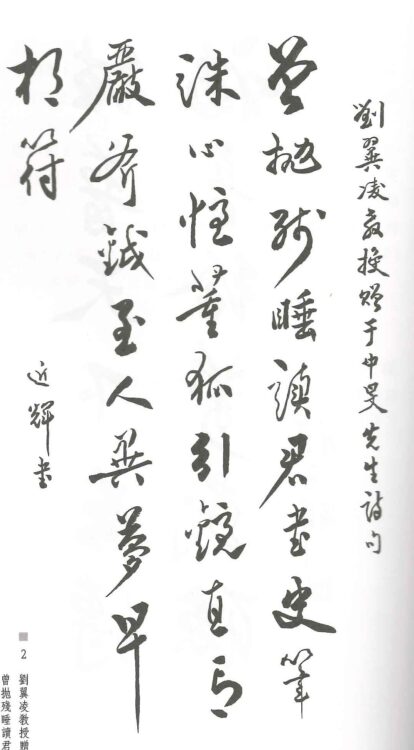 劉翼凌教授贈于中旻先生詩句
曾拋殘睡讀君書史筆
誅心憶董狐引鏡直言
嚴斧鉞至人異夢早
相符
近輝書
2 劉翼凌教授贈
曾拋殘睡讀君